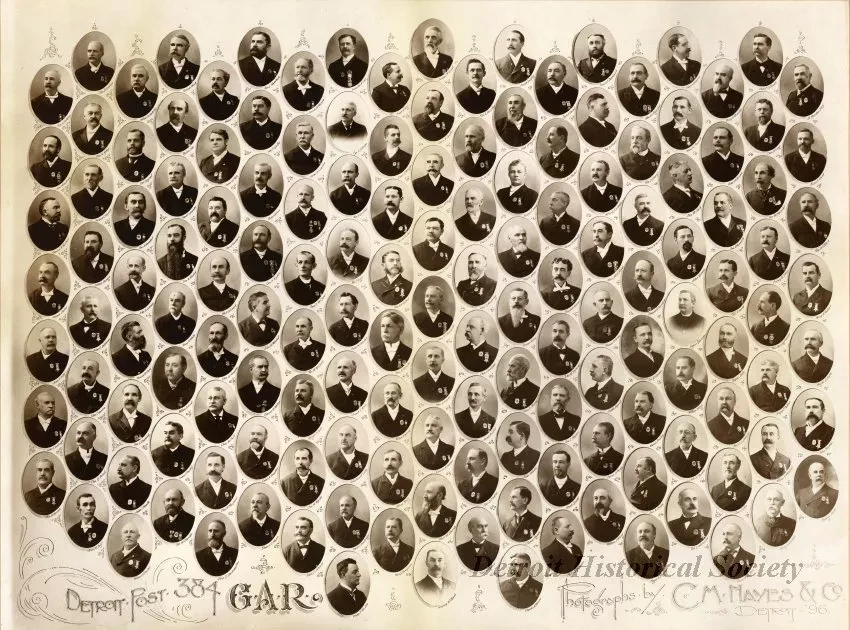 Detroit Historical Society
Detroit Post 384 G.A.R.
Photographs by C.M. Hayes & Co
Detroit '96.